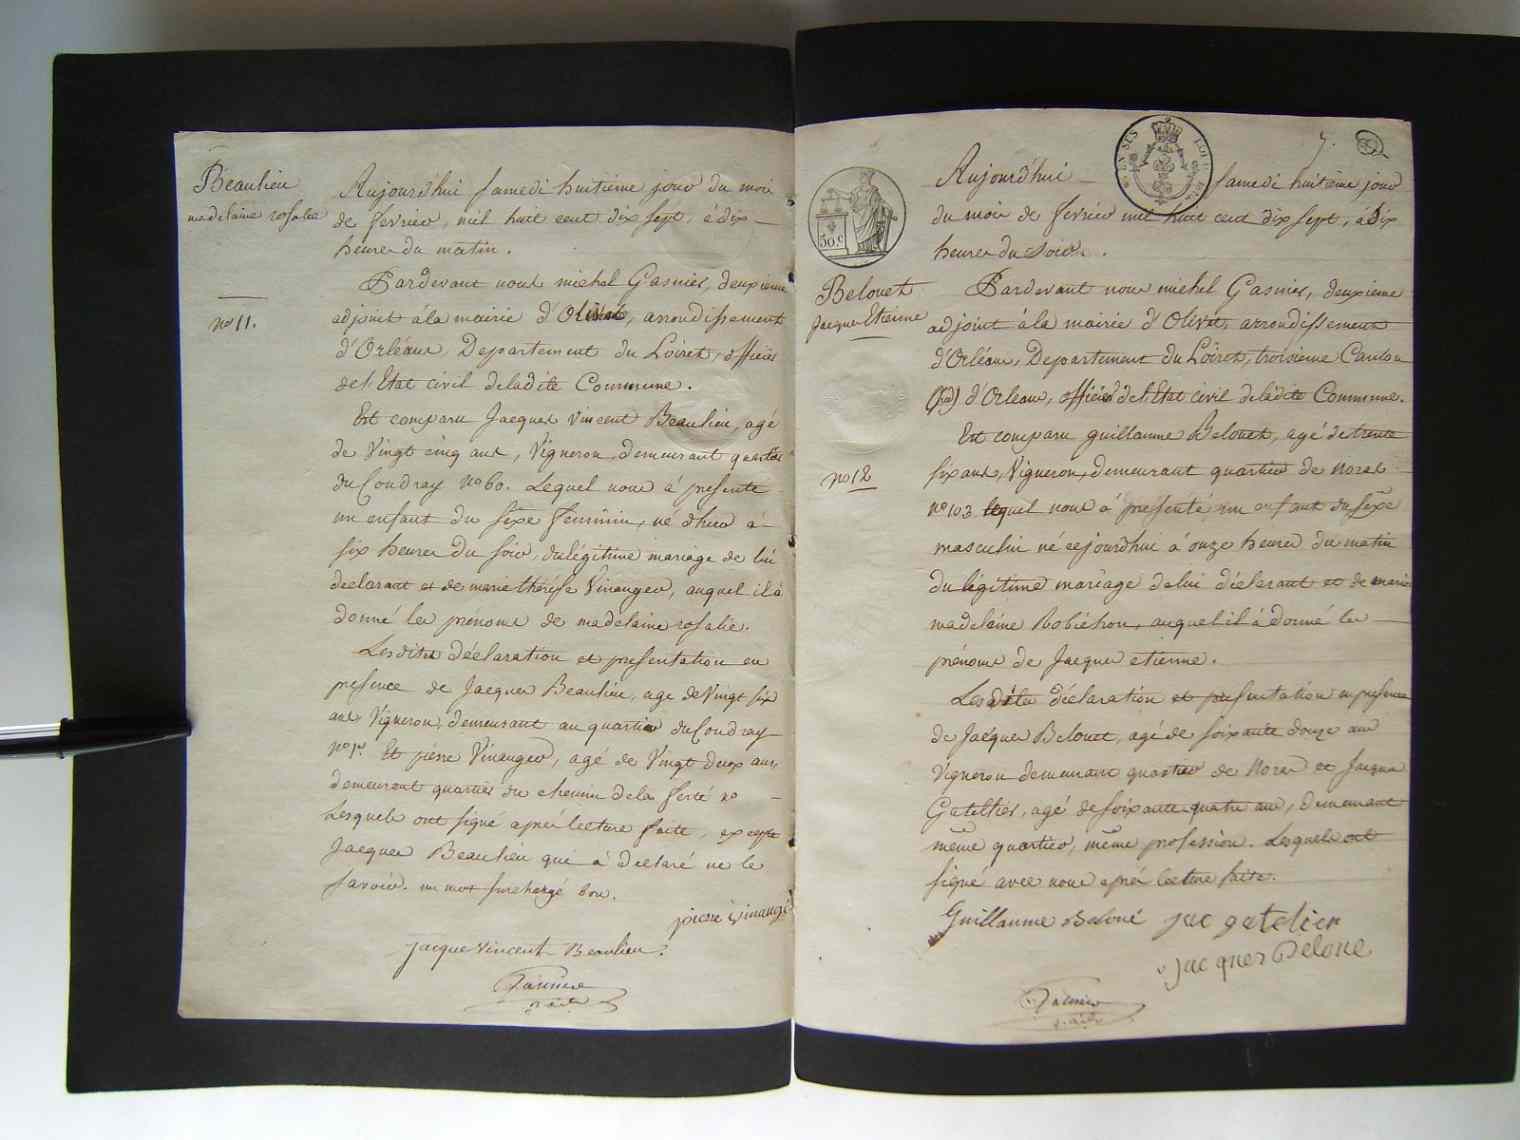 Beaulieu
madelaine rosalie
no 11.
Aujourd'hui samedi huitième jour du mois
de fevrier, mil huit cent dix sept, à dix
heures du matin.
Pardevant nous michel Gasnier, deuxieme
adjoint à la mairie d'Olivet, arrondissement
d'Orléans, Departement du Loiret, officier
de l'Etat civil de ladite Commune.
Est comparu Jacques Vincent Beaulieu, agé
de Vingt cinq ans, Vigneron, demeurant quartier
du Coudray no 60. Lequel nous à présenté
un enfant du sexe feminin, né d'hier à
six heures du soir, du légitime mariage de lui
declarant et de marie thérèse Vinauger, auquel il à
donné les prénoms de madelaine rosalie.
Lesdites déclaration et presentation en
presence de Jacques Beaulieu, age de Vingt six
ans Vigneron, demeurant au quartier du Coudray
no 1er. Et pierre Vinauger, agé de Vingt deux ans,
demeurant quartier du chemin de la ferté no
Lesquels ont signé après lecture faite, excepté
Jacques Beaulieu qui à déclaré ne le
savoir. un mot surchargé bon.
pierre vinaugé
Jacque Vincent Beaulieu
Gasnier
adjt
7.
30 c
Belouet
Jacques Etienne
no 12
Aujourd'hui samedi huitième jour
du mois de fevrier mil huit cent dix sept, à dix
heures du soir.
Pardevant nous michel Gasnier, deuxieme
adjoint à la mairie d'Olivet, arrondissement
d'Orléans, Departement du Loiret, troisieme Canton
(sud) d'Orleans, officier de l'Etat civil de ladite Commune.
Est comparu guillaume Belouet, agé de trente
six ans, Vigneron, demeurant quartier de Noras
no 103 lequel nous à présenté un enfant du sexe
masculin né cejourdhui à onze heures du matin
du légitime mariage de lui déclarant et de marie
madelaine Robichon, auquel il à donné les
prénoms de Jacques etienne.
Lesdites déclaration et presentation en presence
de Jacques Belouet, agé de soixante douze ans
Vigneron demeurant quartier de Noras et Jacques
Gatellier, agé de soixante quatre ans, demeurant
même quartier, même profession. Lesquels ont
signé avec nous après lecture faite.
Guillaume Beloué jac gatelier
jacques Beloue
Gasnier
adjt